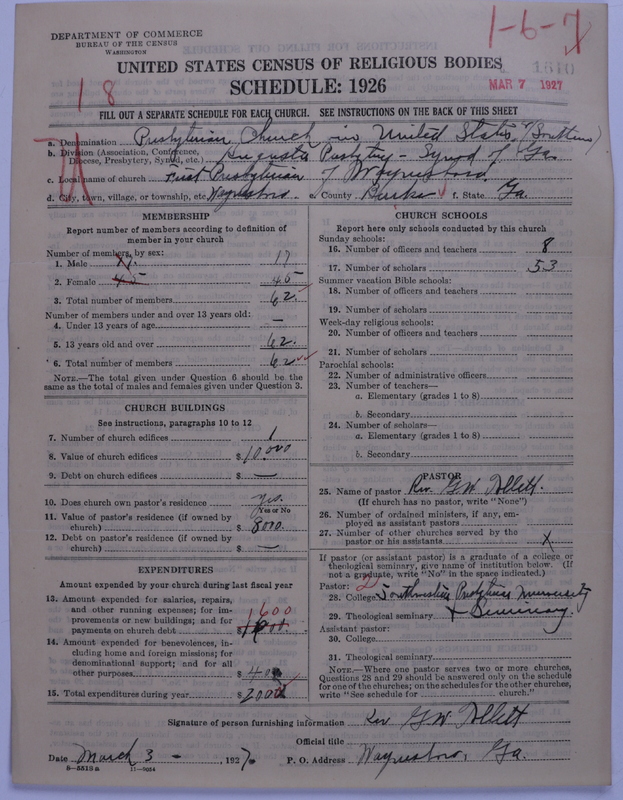 DEPARTMENT OF COMMERCE
BUREAU OF THE CENSUS
WASHINGTON
1-6-7
UNITED STATES CENSUS OF RELIGIOUS BODIES
SCHEDULE: 1926
1610
MAR 7 1927
18
FILL OUT A SEPARATE SCHEDULE FOR EACH CHURCH. SEE INSTRUCTIONS ON THE BACK OF THIS SHEET
a. Denomination Presbyterian Church in United States (Southern)
b. Division (Association, Conference, Diocese, Presbytery, Synod, etc.) Augusta Presbytery - Synod of Ga.
c. Local name of church First Presbyterian of Waynesboro
d. City, town, village, or township, etc. Waynesboro e. County Burke f. State Ga.
MEMBERSHIP
Report number of members according to definition of
member in your church
Number of members, by sex:
1. Male 17
2. Female 45 45
3. Total number of members 62
Number of members under and over 13 years old:
4. Under 13 years of age —
5. 13 years old and over 62
6. Total number of members 62
NOTE.—The total given under Question 6 should be the
same as the total of males and females given under Question 3.
CHURCH BUILDINGS
See instructions, paragraphs 10 to 12
7. Number of church edifices 1
8. Value of church edifices $ 10,000
9. Debt on church edifices $ —
10. Does church own pastor's residence yes.
Yes or No
11. Value of pastor's residence (if owned by
church) $ 8000.
12. Debt on pastor's residence (if owned by
church) $ —
EXPENDITURES
Amount expended by your church during last fiscal year
13. Amount expended for salaries, repairs,
and other running expenses; for im-
provements or new buildings; and for
payments on church debt $ 1600
14. Amount expended for benevolences, in-
cluding home and foreign missions; for
denominational support; and for all
other purposes $ 400
15. Total expenditures during year $ 2000
CHURCH SCHOOLS
Report here only schools conducted by this church
Sunday schools:
16. Number of officers and teachers 8
17. Number of scholars 53
Summer vacation Bible schools:
18. Number of officers and teachers
19. Number of scholars
Week-day religious schools:
20. Number of officers and teachers
21. Number of scholars
Parochial schools:
22. Number of administrative officers
23. Number of teachers—
a. Elementary (grades 1 to 8)
b. Secondary
24. Number of scholars—
a. Elementary (grades 1 to 8)
b. Secondary
PASTOR
25. Name of pastor Rev. G.W. Tollett.
(If church has no pastor, write "None")
26. Number of ordained ministers, if any, em-
ployed as assistant pastors
27. Number of other churches served by the
pastor or his assistants X
If pastor (or assistant pastor) is a graduate of a college or
theological seminary, give name of institution below. (If
not a graduate, write "No" in the space indicated.)
Pastor:
28. College Southwestern Presbyterian University
29. Theological seminary + Seminary.
Assistant pastor:
30. College
31. Theological seminary
NOTE.—Where one pastor serves two or more churches,
Questions 28 and 29 should be answered only on the schedule
for one of the churches; on the schedules for the other churches,
write "See schedule for church."
Signature of person furnishing information Rev G.W. Tollett
Official title
Date March 3 -, 1927. P. O. Address Waynesboro, Ga.
8-5519a 11-9054